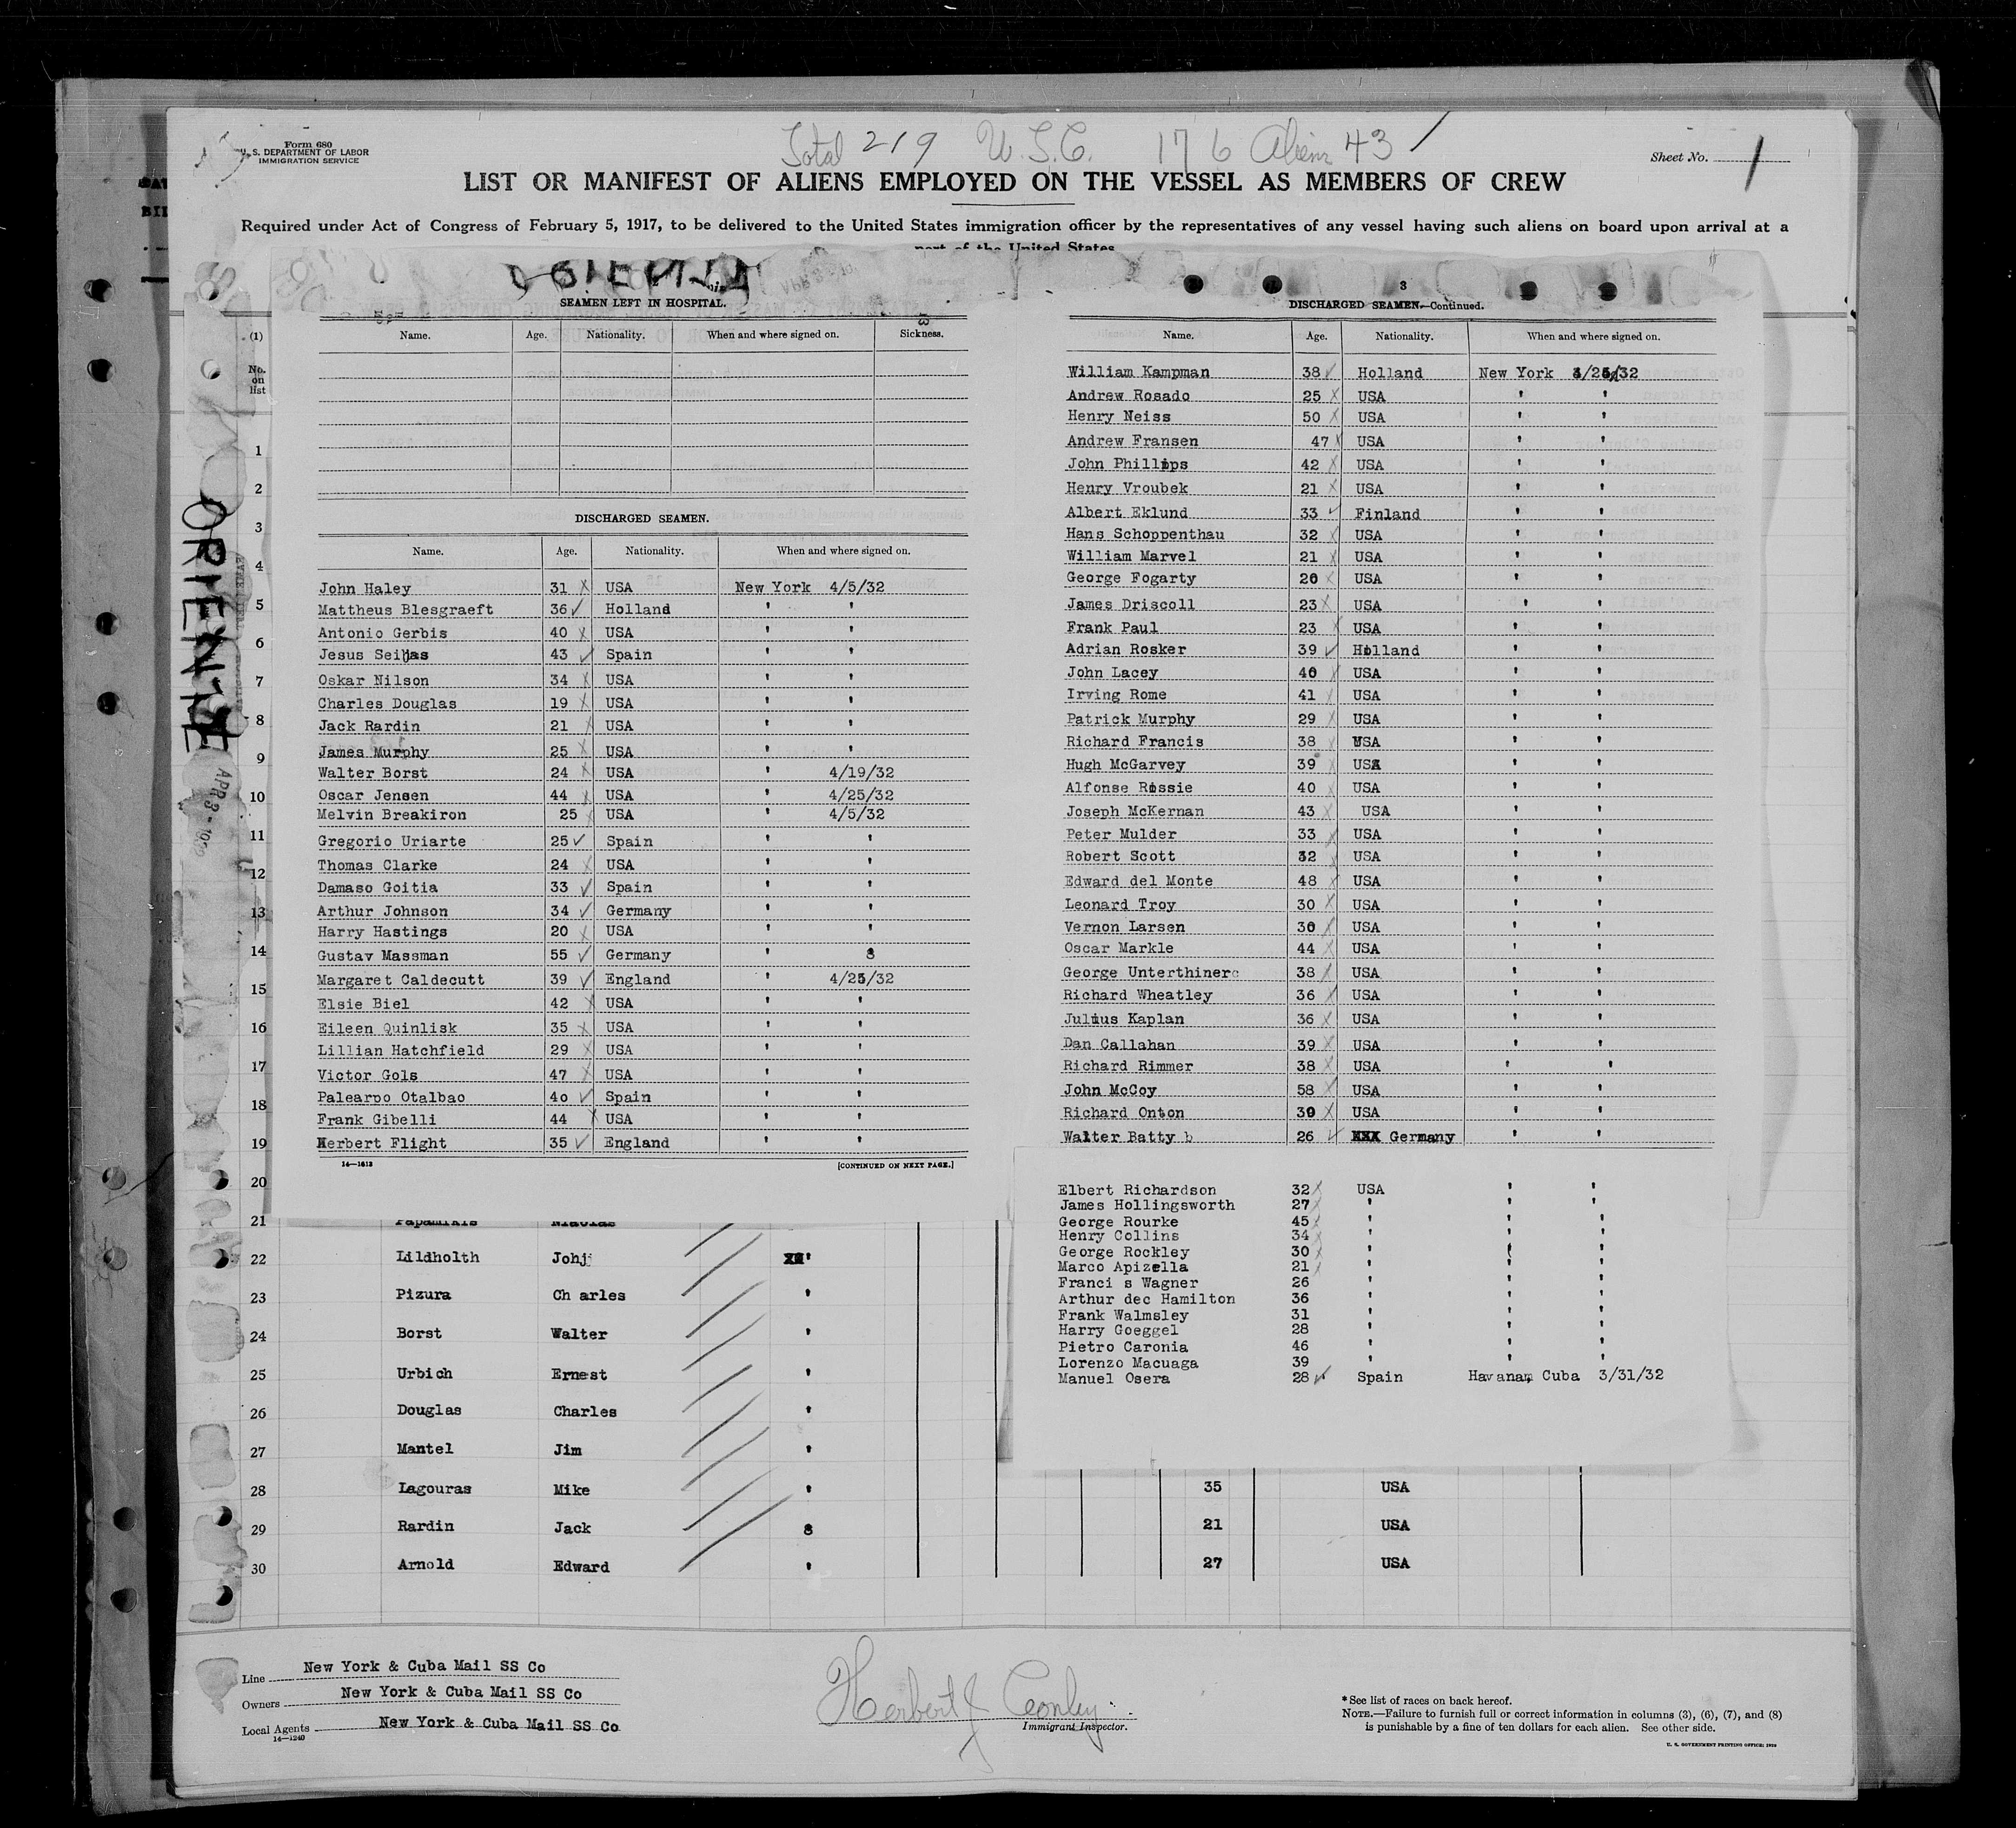 Form 680
U. S. DEPARTMENT OF LABOR
IMMIGRATION SERVICE
Total 219 U.S.C. 176 Aliens 43
Sheet No. 1
LIST OR MANIFEST OF ALIENS EMPLOYED ON THE VESSEL AS MEMBERS OF CREW
Required under Act of Congress of February 5, 1917, to be delivered to the United States immigration officer by the representatives of any vessel having such aliens on board upon arrival at a
port of the United States
ORIENTE
SEAMEN LEFT IN HOSPITAL.
Name. Age. Nationality. When and where signed on. Sickness.
DISCHARGED SEAMEN.
Name. Age. Nationality. When and where signed on.
John Haley 31 USA New York 4/5/32
Mattheus Blesgraeft 36 Holland ' '
Antonio Gerbis 40 USA ' '
Jesus Seijas 43 Spain ' '
Oskar Nilson 34 USA ' '
Charles Douglas 19 USA ' '
Jack Rardin 21 USA ' '
James Murphy 25 USA ' '
Walter Borst 24 USA ' 4/19/32
Oscar Jensen 44 USA ' 4/25/32
Melvin Breakiron 25 USA ' 4/5/32
Gregorio Uriarte 25 Spain ' '
Thomas Clarke 24 USA ' '
Damaso Goitia 33 Spain ' '
Arthur Johnson 34 Germany ' '
Harry Hastings 20 USA ' '
Gustav Massman 55 Germany ' 8
Margaret Caldecutt 39 England ' 4/25/32
Elsie Biel 42 USA ' '
Eileen Quinlisk 35 USA ' '
Lillian Hatchfield 29 USA ' '
Victor Gols 47 USA ' '
Palearpo Otalbao 4o Spain ' '
Frank Gibelli 44 USA ' '
Herbert Flight 35 England ' '
14—1613 [CONTINUED ON NEXT PAGE.]
3
DISCHARGED SEAMEN—Continued.
Name. Age. Nationality. When and where signed on.
William Kampman 38 Holland New York
Andrew Rosado 25 USA ' '
Henry Neiss 50 USA ' '
Andrew Fransen 47 USA ' '
John Phillips 42 USA ' '
Henry Vroubek 21 USA ' '
Albert Eklund 33 Finland ' '
Hans Schoppenthau 32 USA ' '
William Marvel 21 USA ' '
George Fogarty 20 USA ' '
James Driscoll 23 USA ' '
Frank Paul 23 USA ' '
Adrian Rosker 39 Holland ' '
John Lacey 40 USA ' '
Irving Rome 41 USA ' '
Patrick Murphy 29 USA ' '
Richard Francis 38 USA ' '
Hugh McGarvey 39 USA ' '
Alfonse Rossie 40 USA ' '
Joseph McKernan 43 USA ' '
Peter Mulder 33 USA ' '
Robert Scott 32 USA ' '
Edward del Monte 48 USA ' '
Leonard Troy 30 USA ' '
Vernon Larsen 30 USA ' '
Oscar Markle 44 USA ' '
George Unterthinerc 38 USA ' '
Richard Wheatley 36 USA ' '
Julius Kaplan 36 USA ' '
Dan Callahan 39 USA ' '
Richard Rimmer 38 USA ' '
John McCoy 58 USA ' '
Richard Onton 39 USA ' '
Walter Batty b 26 XXX Germany ' '
Elbert Richardson 32 USA ' '
James Hollingsworth 27 ' ' '
George Rourke 45 ' ' '
Henry Collins 34 ' ' '
George Rockley 30 ' ( '
Marco Apizella 21 ' ' '
Franci s Wagner 26 ' ' '
Arthur dec Hamilton 36 ' ' '
Frank Walmsley 31 ' ' '
Harry Goeggel 28 ' ' '
Pietro Caronia 46 ' ' '
Lorenzo Macuaga 39 ' ' '
Manuel Osera 28 Spain Havanam, Cuba 3/31/32
(1)
No.
on
list
1
2
3
4
5
6
7
8
9
10
11
12
13
14
15
16
17
18
19
20
21 Papamikis Nicolas
22 Lildholth Johj '
23 Pizura Ch arles '
24 Borst Walter '
25 Urbich Ernest '
26 Douglas Charles '
27 Mantel Jim '
28 Lagouras Mike ' 35 USA
29 Rardin Jack 8 21 USA
30 Arnold Edward ' 27 USA
ORIENTE
Line New York & Cuba Mail SS Co
Owners New York & Cuba Mail SS Co
Local Agents New York & Cuba Mail SS Co
14—1240
Herbert J Conley
Immigrant Inspector.
* See list of races on back hereof.
NOTE.—Failure to furnish full or correct information in columns (3), (6), (7), and (8)
is punishable by a fine of ten dollars for each alien. See other side.
U. S. GOVERNMENT PRINTING OFFICE: 1929